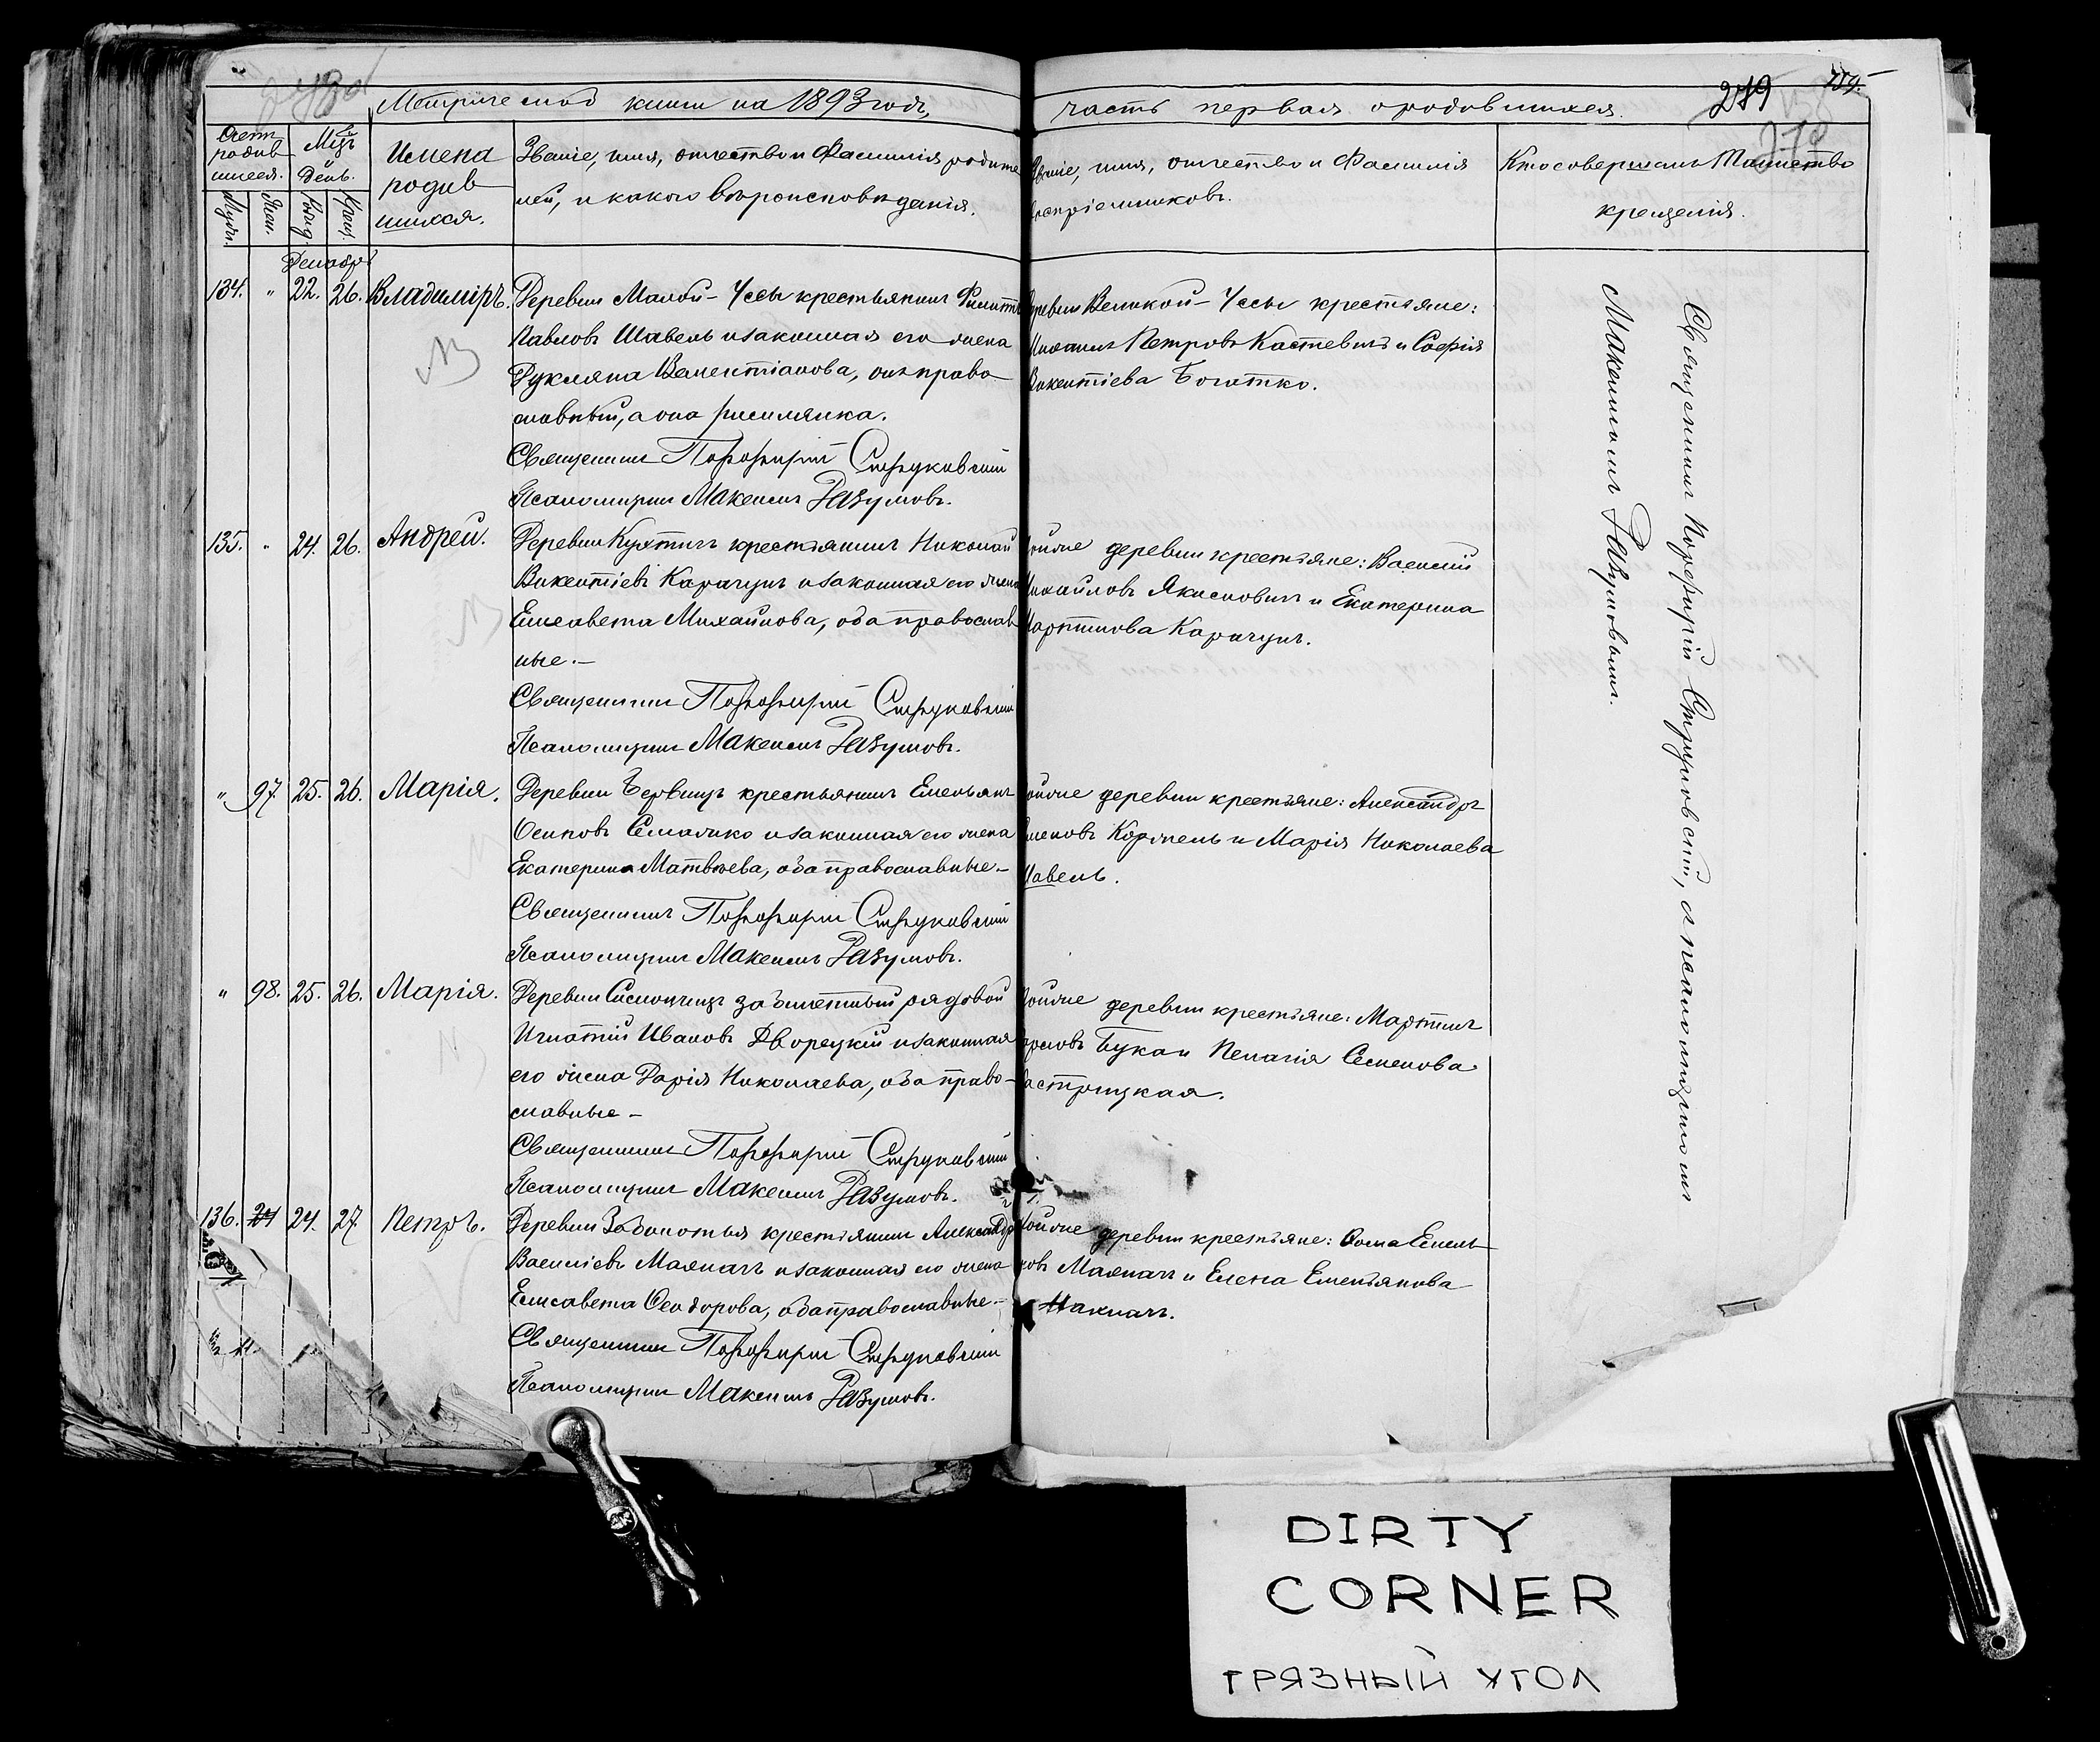 Метрической книги на 1893 годъ,
часть первая о родившихся.
279
Счетъ родив шихся.
Мцъ и День.
Муж.
Жен.
Рожд.
Крещ.
Имена
родив
шихся.
Званіе, имя, отчество и Фамилія родите
лей, и какого вѣроисповѣданія.
Званіе, имя, отчество и Фамилія
воспріемниковъ.
Кто совершалъ Таинство
крещенія.
Декабрь
134. " 22. 26. Владиміръ.
Деревни Малой-Уссы крестьянинъ Филиппъ
Павловъ Шавель и законная его жена
Викентіанова, онъ право
славный, а она римлянка.
Священникъ Порфирій Струковскій
Псаломщикъ Максимъ Разумовъ.
Деревни Великой-Уссы крестьяне:
Михаилъ Петровъ Костевичъ и Софія
Викентіева Богатко.
135. " 24. 26. Андрей.
Деревни Кухтичъ крестьянинъ Николай
Викентіевъ Карачунъ и законная его жена
Елисавета Михайлова, оба православ
ные.—
Священникъ Порфирій Струковскій
Псаломщикъ Максимъ Разумовъ.
тойже деревни крестьяне: Василій
Михайловъ Якимовичъ и Екатерина
Мартинова Карачунъ.
" 97. 25. 26. Марія.
Деревни крестьянинъ Емельянъ
Осиповъ Семашко и законная его жена
Екатерина Матвѣева, оба православные.—
Священникъ Порфирій Струковскій
Псаломщикъ Максимъ Разумовъ.
тойже деревни крестьяне: Александръ
Корженъ и Марія Николаева
Шавель.
" 98. 25. 26. Марія.
Деревни забилетный рядовой
Игнатій Ивановъ Дворецкій и законная
его жена Дарія Николаева, оба право-
славные—
Священникъ Порфирій Струковскій
Псаломщикъ Максимъ Разумовъ.
тойже деревни крестьяне: Мартинъ
Букаи Пелагія Семенова
136. 24. 27. Петръ.
Деревни Заболотья крестьянинъ Александръ
Василіевъ Маякачъ и законная его жена
Елисавета Ѳеодорова, оба православные.—
Священникъ Порфирій Струковскій
Псаломщикъ Максимъ Разумовъ.
тойже деревни крестьяне: Ѳома Емель
Маякачъ и Елена Емельянова
Маякачъ.
Священникъ Порфирій Струковскій, съ псаломщикомъ
Максимомъ Разумовымъ.
DIRTY
CORNER
ГРЯЗНЫЙ УГОЛ